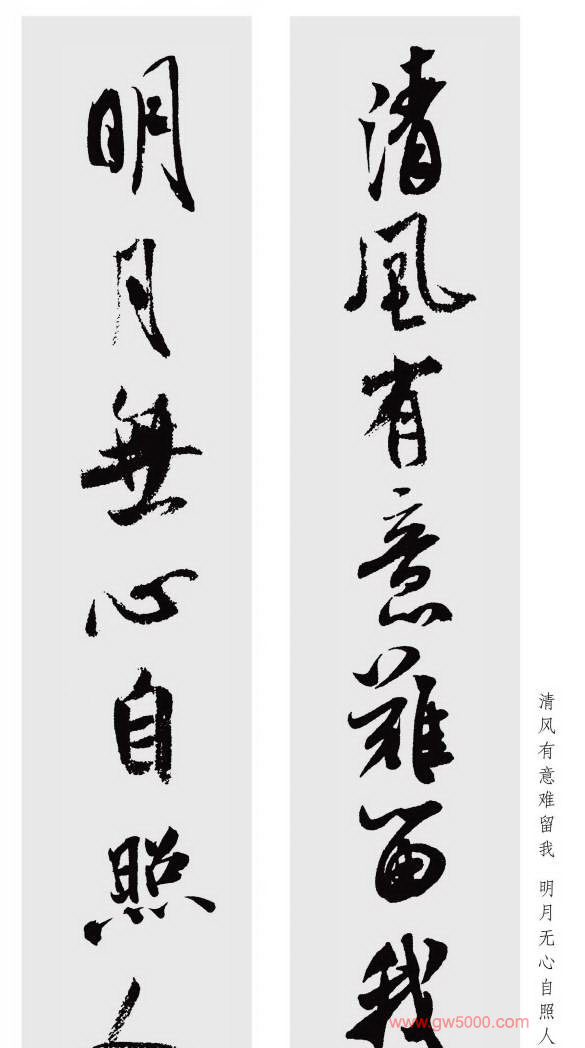 清風有意難留我
明月無心自照人
清风有意难留我 明月无心自照人
www.gw5000.com